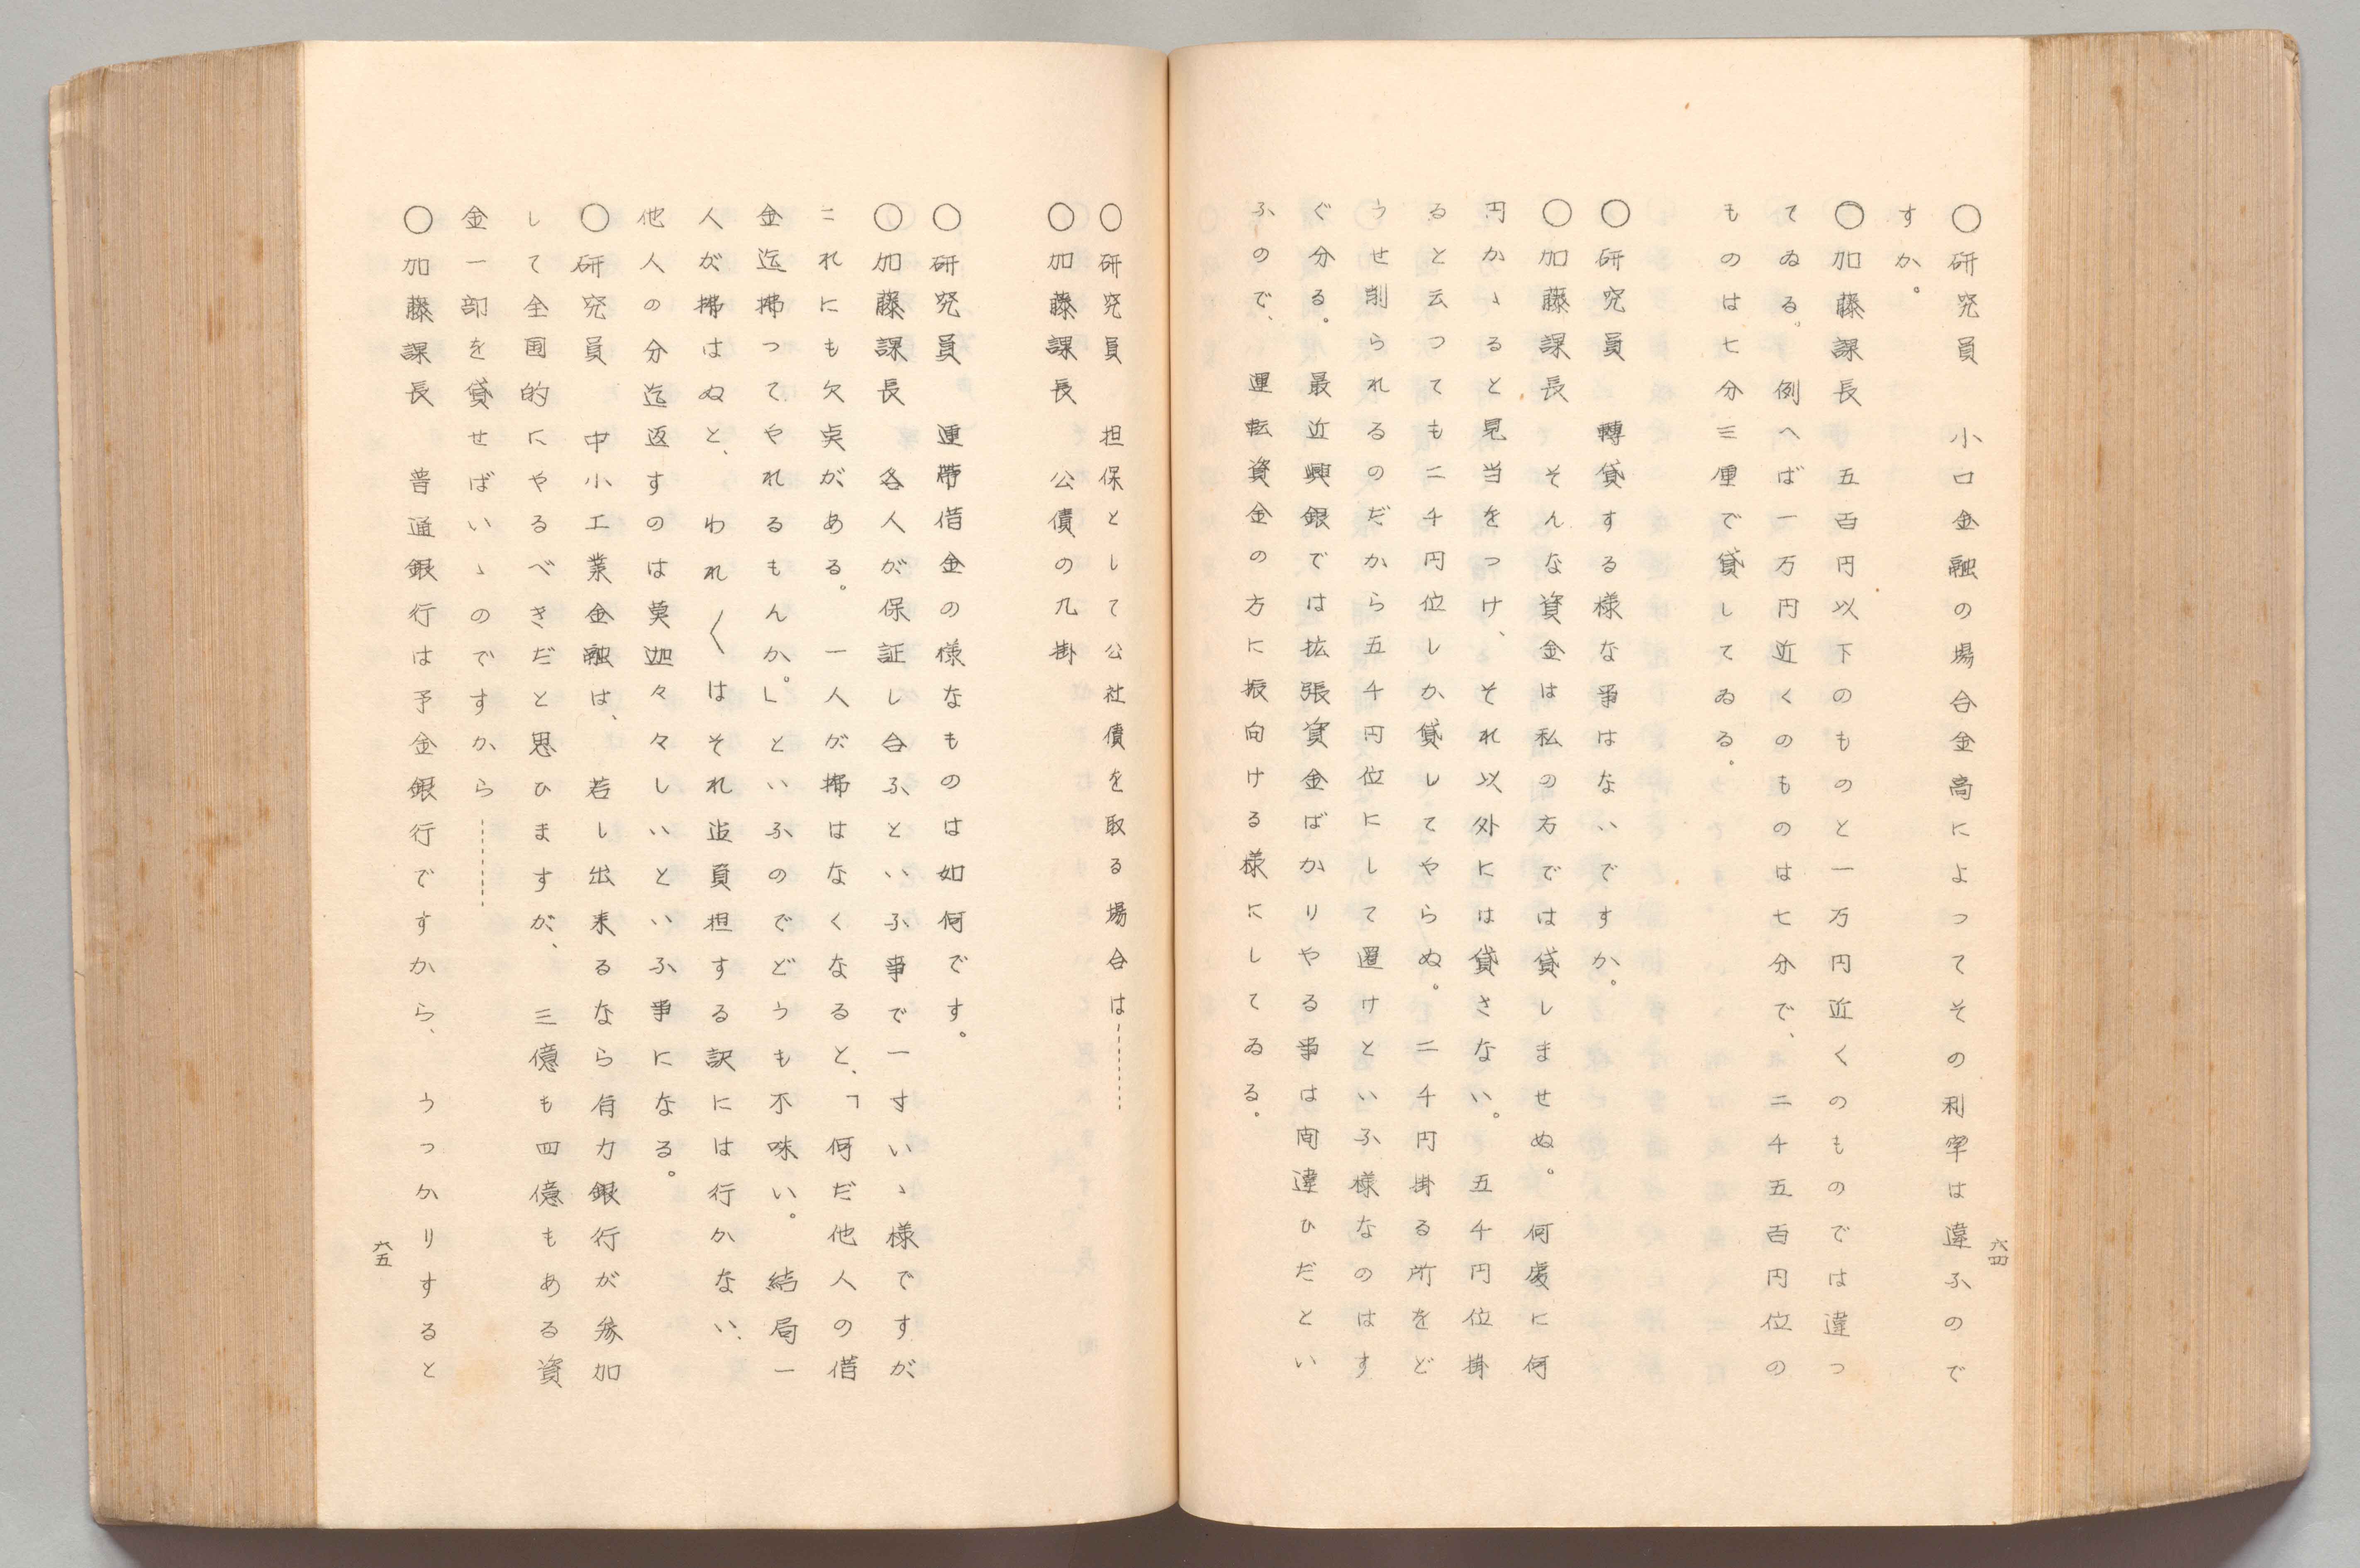 〇研究員　小口金融の場合金高によってその利率は違ふので
すか。
〇加藤課長　五百円以下のものと一万円近くのものでは違っ
てゐる。例へば一万円近くのものは七分で、二千五百円位の
ものは七分三厘で貸してゐる。
〇研究員　轉貸する様な事はないですか。
〇加藤課長　そんな資金は私の方では貸しませぬ。何処に何
円かゝると見当をつけ、それ以外には貸さない。五千円位掛
ると云つても二千円位しか貸してやらぬ。二千円掛る所をど
うせ削られるのだから五千円位にして置けといふ様なのはす
ぐ分る。最近興銀では拡張資金ばかりやる事は間違ひだとい
ふので、運転資金の方に振向ける様にしてゐる。
六四
〇研究員　担保として公社債を取る場合は………
〇加藤課長　公債の九掛
〇研究員　連帯借金の様なものは如何です。
〇加藤課長　各人が保証し合ふといふ事で一すいゝ様ですが
これにも欠点がある。一人が拂はなくなると、「何だ他人の借
金迄拂つてやれるもんか。」といふのでどうも不味い。結局一
人が拂はぬと、われ〱はそれ迄負担する訳には行かない、
他人の分迄返すのは莫迦々々しいといふ事になる。
〇研究員　中小工業金融は、若し出来るなら有力銀行が参加
して全国的にやるべきだと思ひますが、三億も四億もある資
金一部を貸せばいゝのですから………
〇加藤課長　普通銀行は予金銀行ですから、うっかりすると
六五